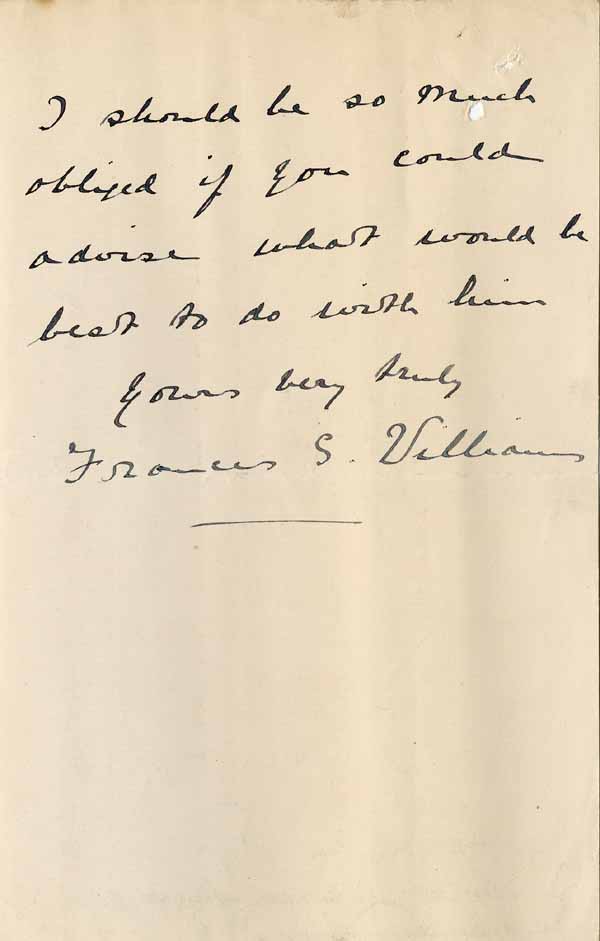 I should be so much
obliged if you could
advise what would be
best to do with him
Yours very truly
Frances S. Williams